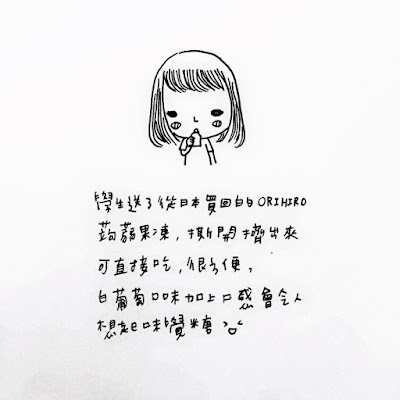 學生送了從日本買回的 ORIHIRO
蒟蒻果凍，撕開擠出來
可直接吃，很方便，
白葡萄口味加上口感會令人
想起e味覺糖